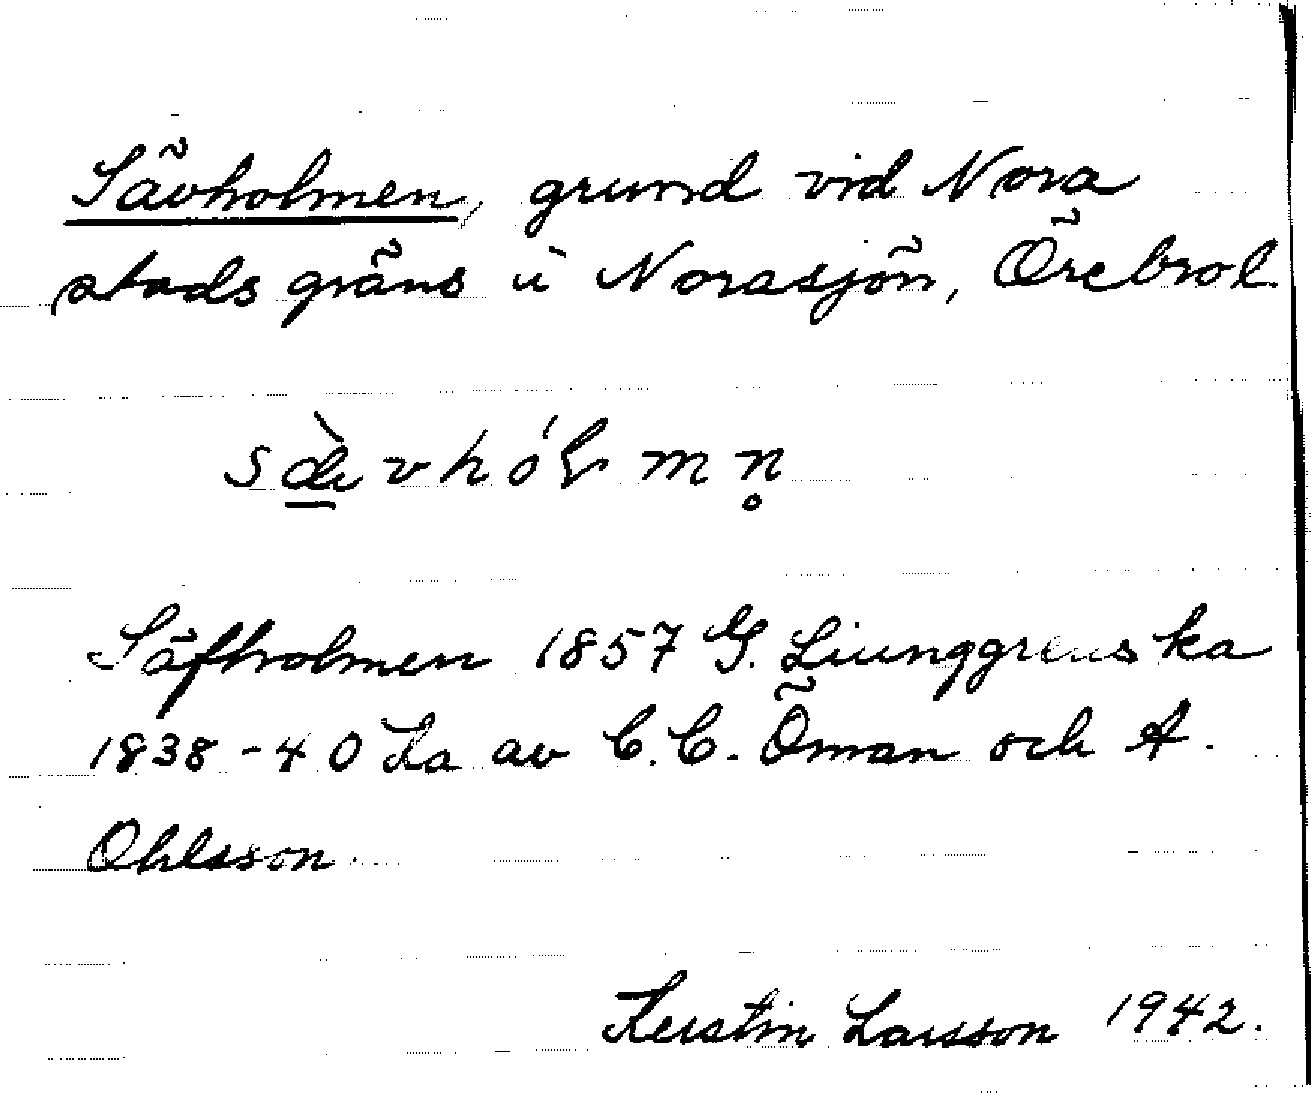 Sävholmen, grund vid Nora
stads gräns i Norasjön, Örebro l.
sæ̀vhóɫmn̥
Säfholmen 1857 G. Liunggrenska
1838-40 Ka av C.C. Öman och A.
Ohlsson
Kerstin Larsson 1942.